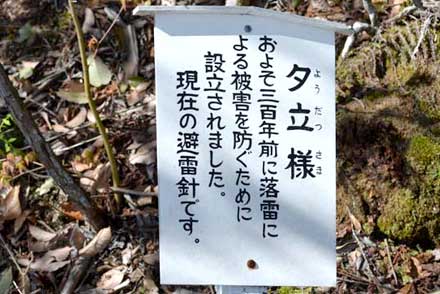 夕立様
ようだつさき
およそ三百年前に落雷に
よる被害を防ぐために
設立されました。
現在の避雷針です。